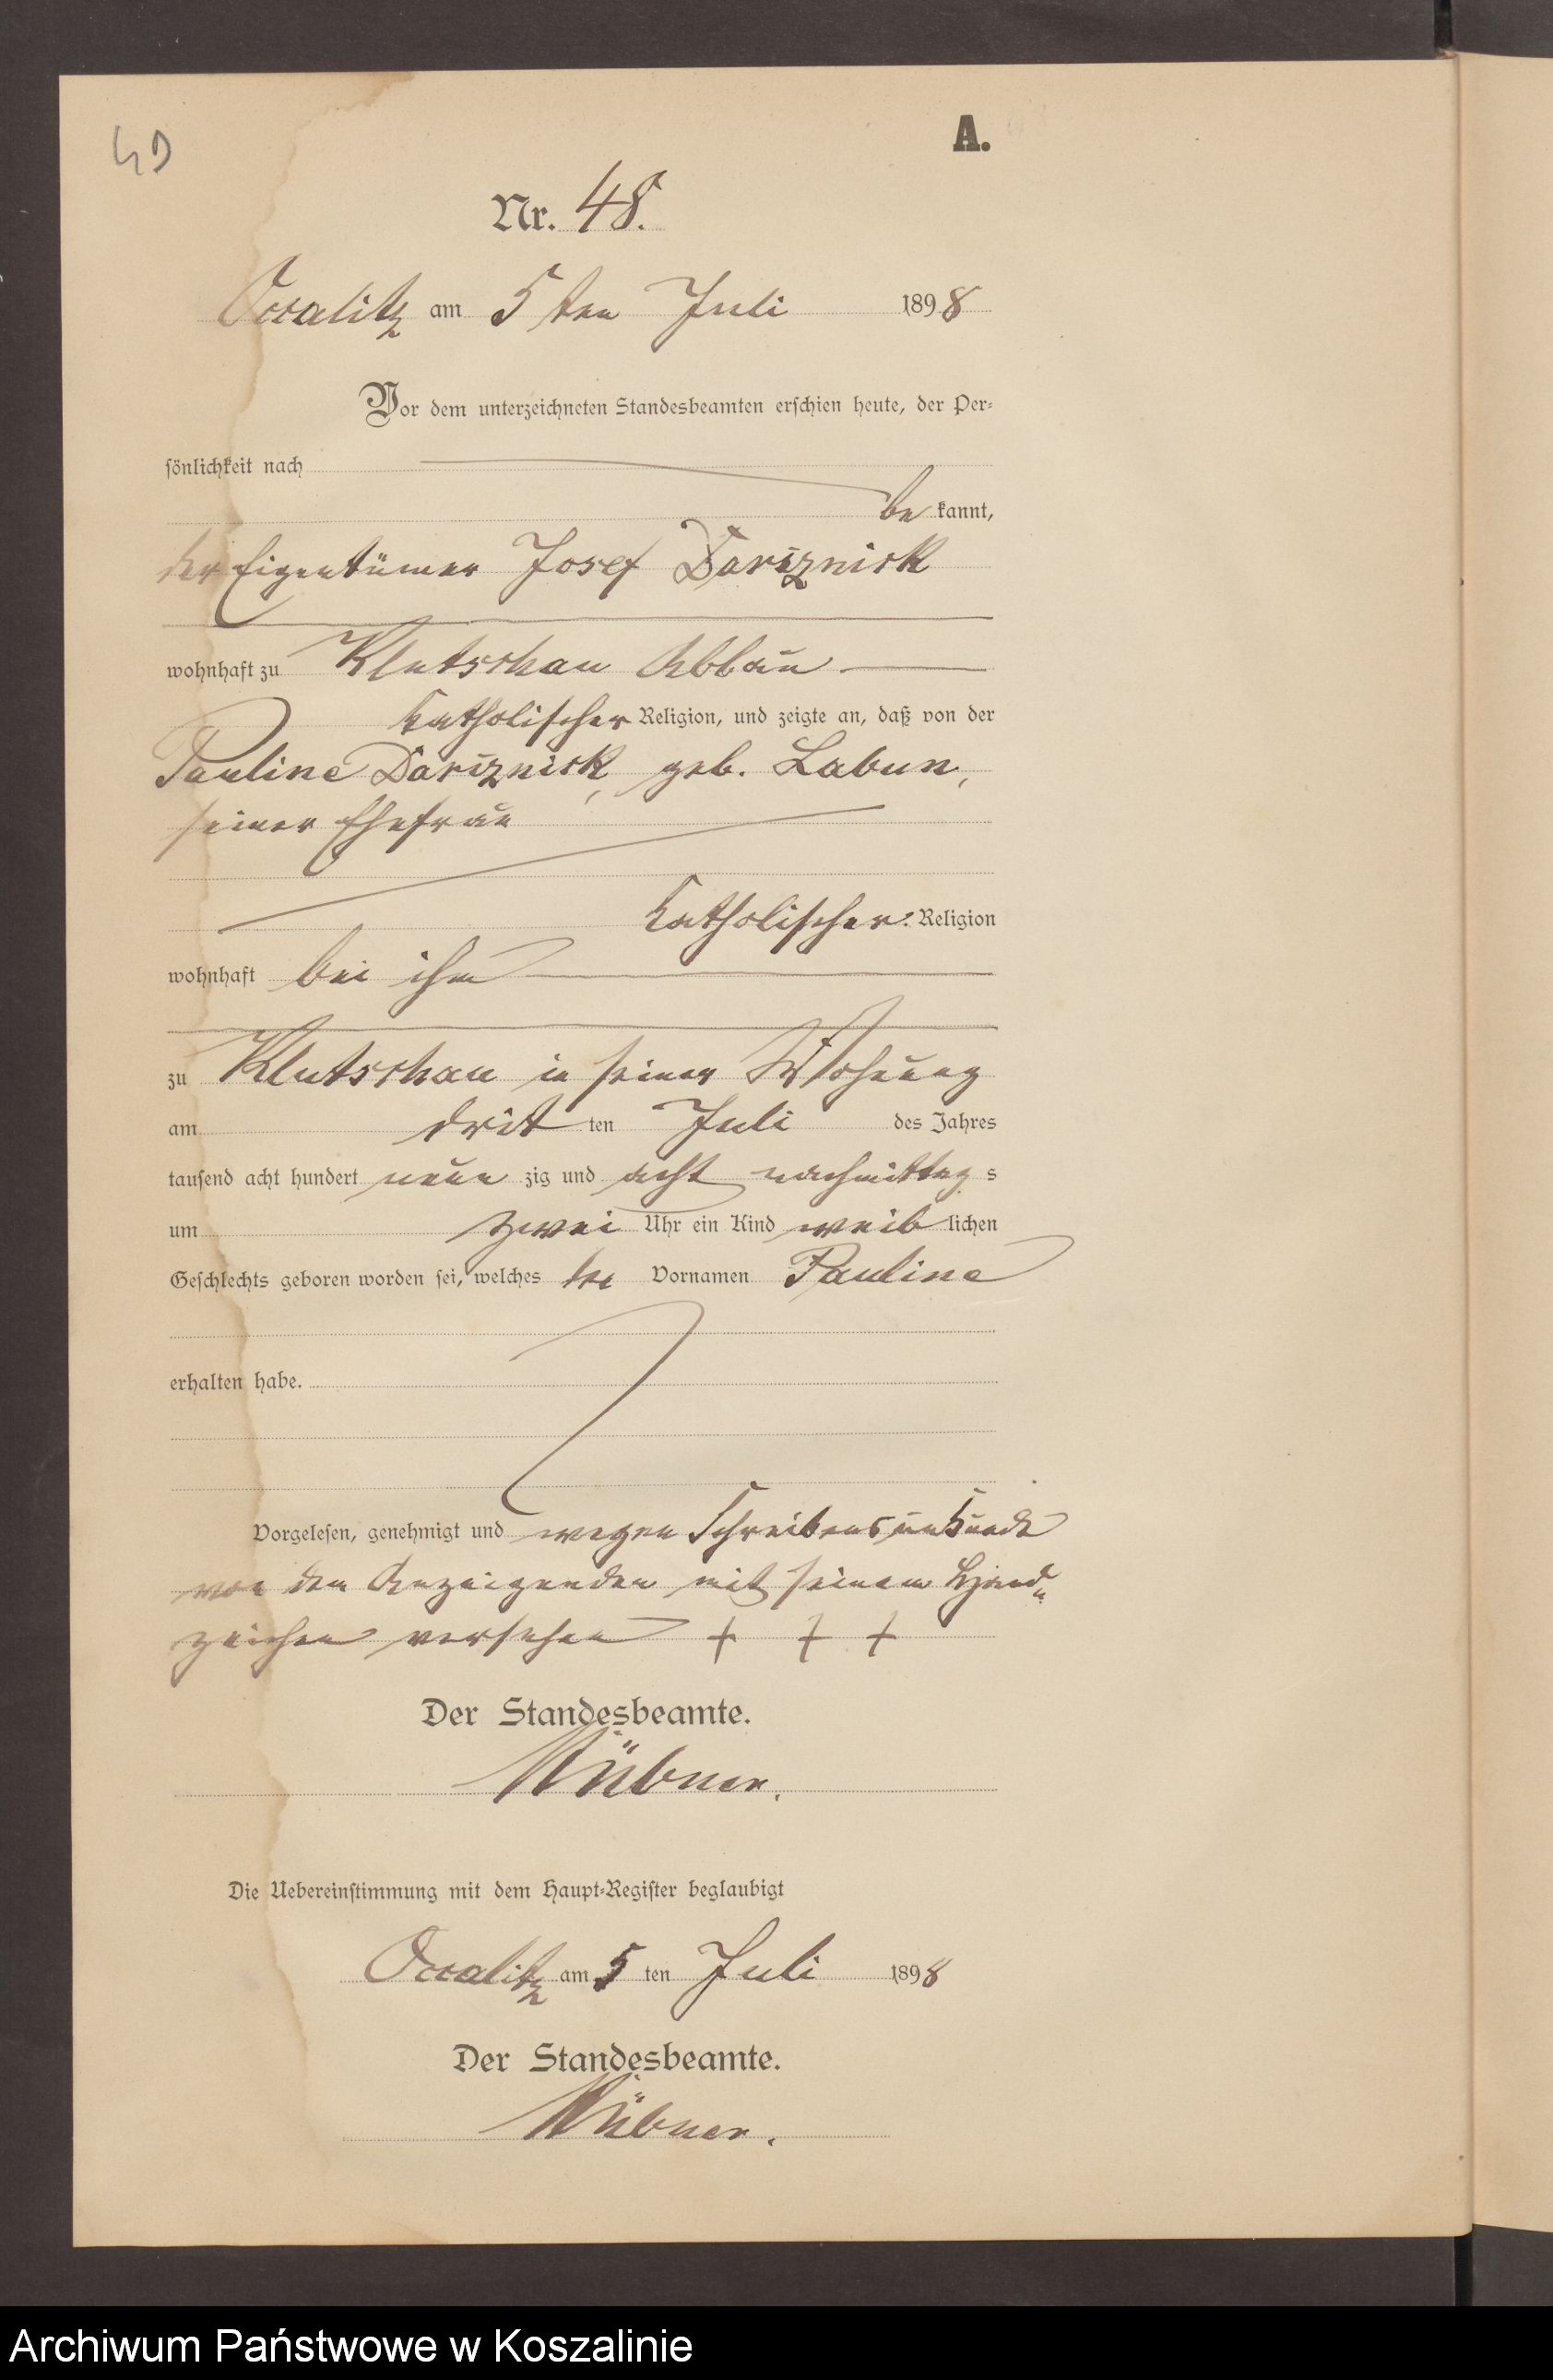 A.
Nr. 48.
Occalitz am 5 ten Juli 1898
Vor dem unterzeichneten Standesbeamten erschien heute, der Per-
sönlichkeit nach
be kannt,
der Eigentümer Josef
wohnhaft zu Klutschau Abbau
katholischer Religion, und zeigte an, daß von der
Pauline geb. Labun,
seiner Ehefrau
katholischer Religion
wohnhaft bei ihm
zu Klutschau in seiner Wohnung
am drit ten Juli des Jahres
tausend acht hundert neun zig und acht nachmittag s
um zwei Uhr ein Kind weib lichen
Geschlechts geboren worden sei, welches den Vornamen Pauline
erhalten habe.
Vorgelesen, genehmigt und wegen Schreibensunkunde
von dem Anzeigenden mit seinem Hand-
zeichen versehen + + +
Der Standesbeamte.
Die Uebereinstimmung mit dem Haupt-Register beglaubigt
Occalitz am 5 ten Juli 1898
Der Standesbeamte.
Archiwum Państwowe w Koszalinie